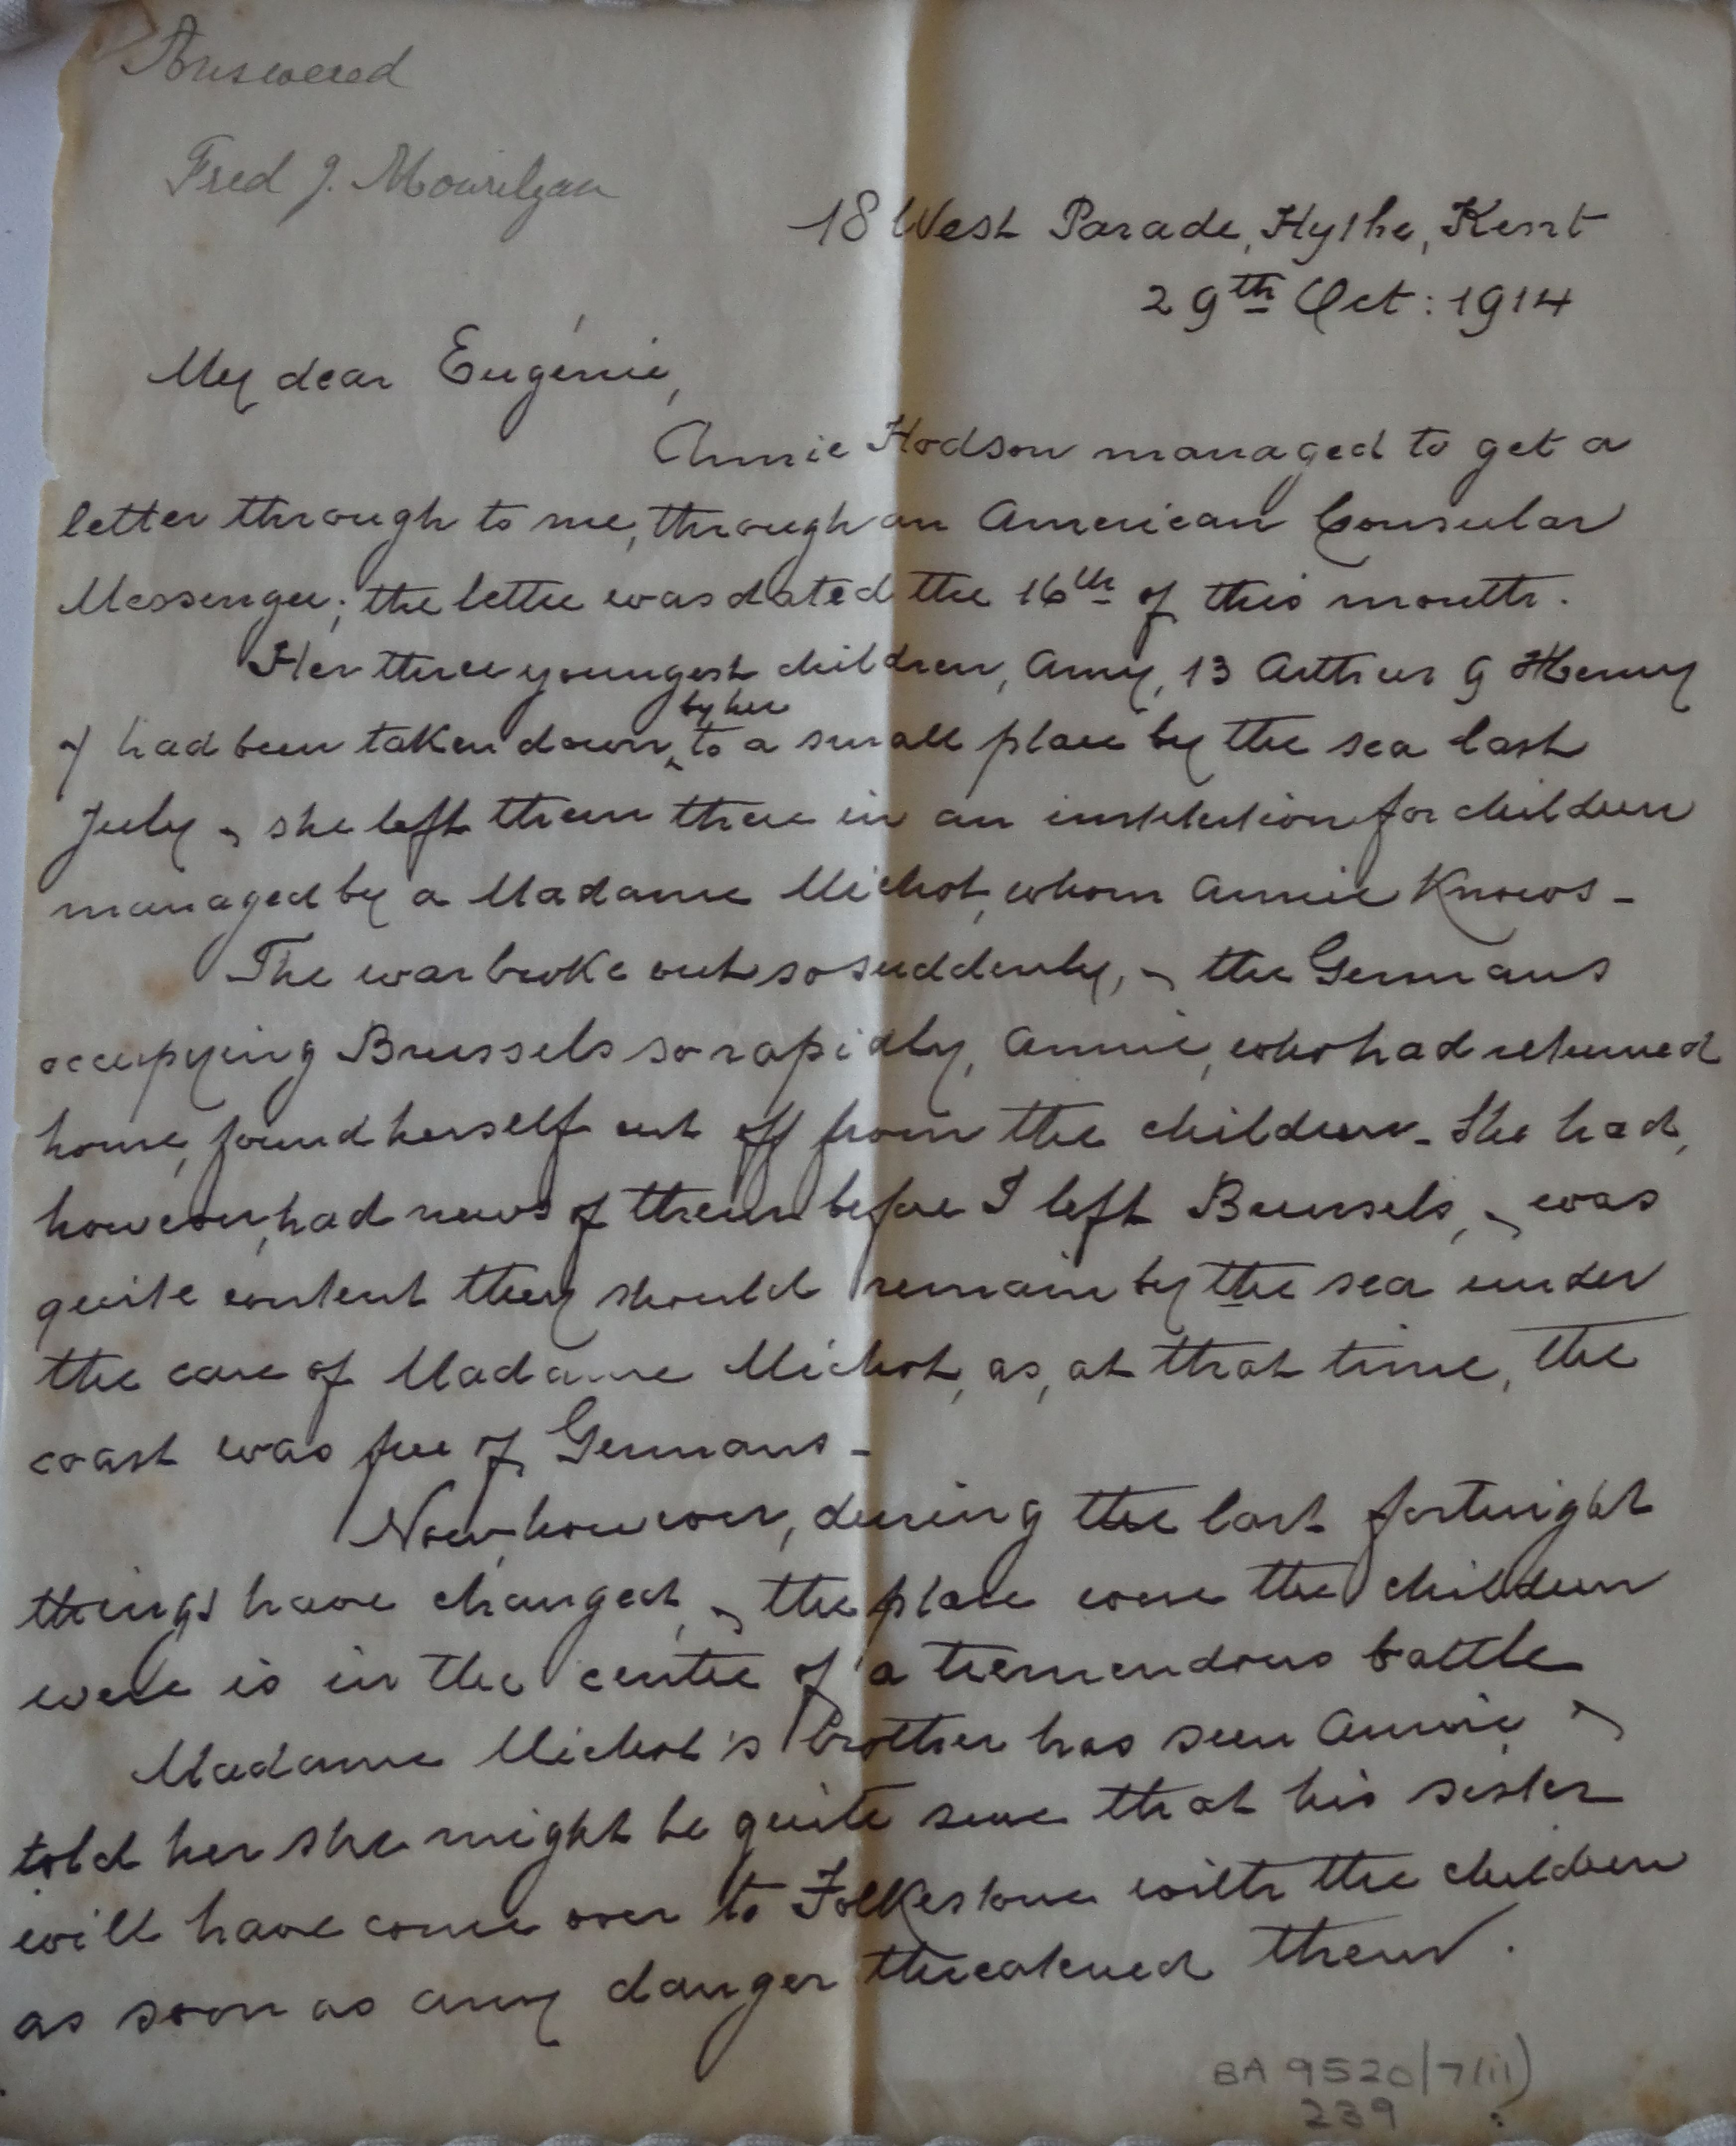 Answered
Fred J. Mourilyan
18 West Parade, Hythe, Kent
29th Oct: 1914
My dear Eugénie,
Annie Hodson managed to get a
letter through to me, through an American Consular
Messenger; the letter was dated the 16th of this month.
Her three youngest children, Amy, 13 Arthur 9 Henry
by her
7 had been taken down to a small place by the sea last
July & she left them there in an institution for children
managed by a Madame Michot, whom Annie knows -
The war broke out so suddenly, & the Germans
occupying Brussels so rapidly, Annie, who had returned
home, found herself cut off from the children - She had,
however, had news of them before I left Brussels, & was
quite content they should remain by the sea under
the care of Madame Michot, as, at that time, the
coast was free of Germans -
Now, however, during the last fortnight
things have changed, & the place were the children
were is in the centre of a tremendous battle
Madame Michot's brother has seen Annie &
told her she might be quite sure that his sister
will have come over to Folkestone with the children
as soon as any danger threatened them.
BA 9520/7(ii)
239